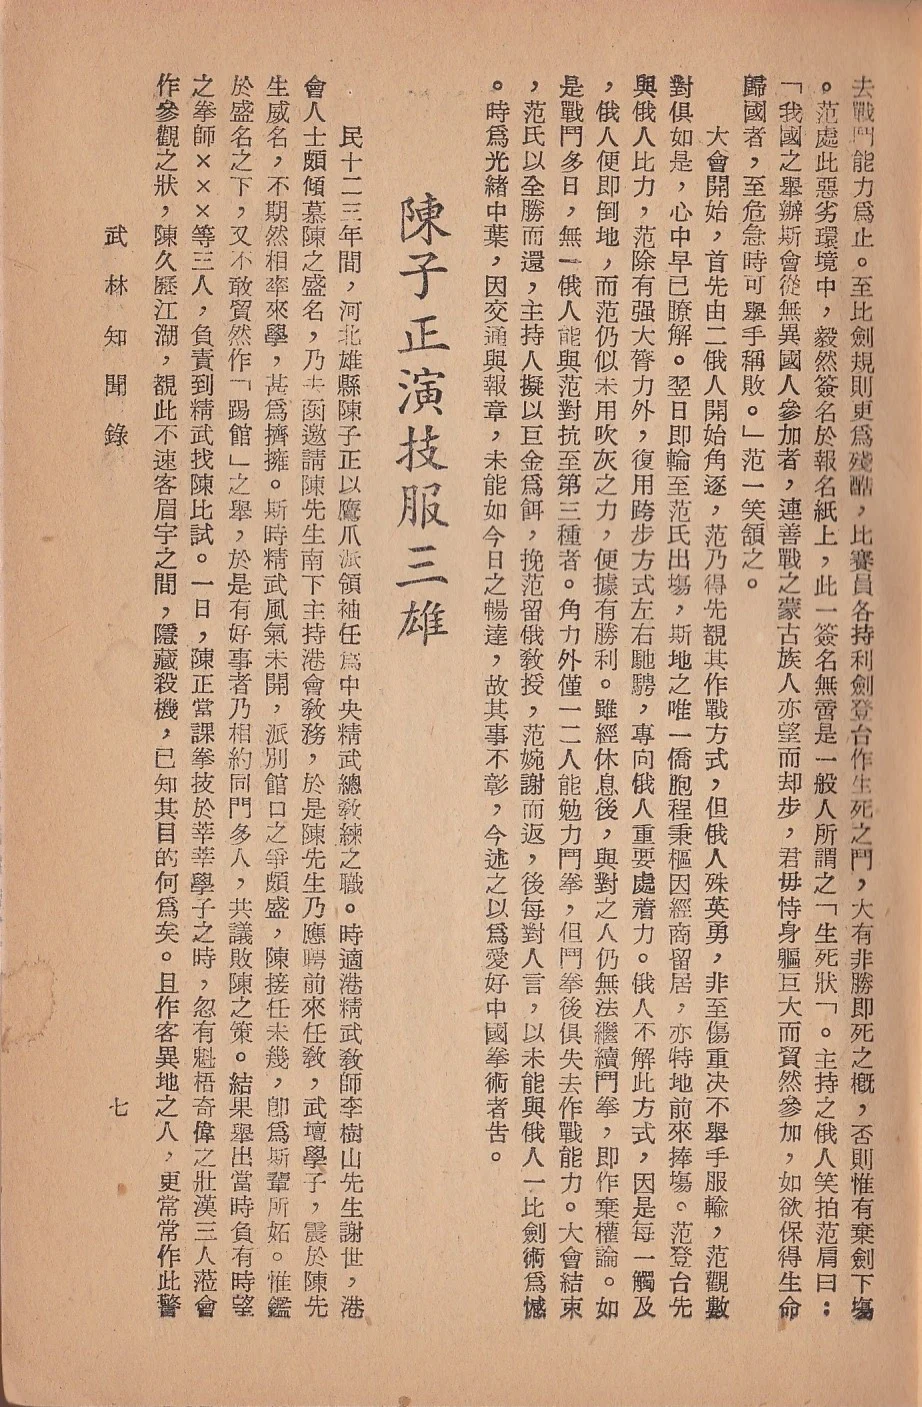 去戰鬥能力爲止。至比劍規則更爲殘酷，比賽員各持利劍登台作生死之鬥，大有非勝即死之概，否則惟有棄劍下塲
。范處此惡劣環境中，毅然簽名於報名紙上，此一簽名無啻是一般人所謂之「生死狀「。主持之俄人笑拍范肩曰：
「我國之舉辦斯會從無異國人參加者，連善戰之蒙古族人亦望而却步，君毋恃身軀巨大而貿然參加，如欲保得生命
歸國者，至危急時可舉手稱敗。」范一笑頷之。
大會開始，首先由二俄人開始角逐，范乃得先覩其作戰方式，但俄人殊英勇，非至傷重決不舉手服輸，范觀數
對俱如是，心中早已瞭解。翌日即輪至范氏出塲，斯地之唯一僑胞程秉樞因經商留居，亦特地前來捧塲。范登台先
與俄人比力，范除有强大膂力外，復用跨步方式左右馳騁，專向俄人重要處着力。俄人不解此方式，因是每一觸及
，俄人便即倒地，而范仍似未用吹灰之力，便據有勝利。雖經休息後，與對之人仍無法繼續鬥拳，即作棄權論。如
是戰鬥多日，無一俄人能與范對抗至第三種者。角力外僅一二人能勉力鬥拳，但鬥拳後俱失去作戰能力。大會結束
，范氏以全勝而還，主持人擬以巨金爲餌，挽范留俄教授，范婉謝而返，後每對人言，以未能與俄人一比劍術爲憾
。時爲光緒中葉，因交通與報章，未能如今日之暢達，故其事不彰，今述之以爲愛好中國拳術者吿。
陳子正演技服三雄
民十二三年間，河北雄縣陳子正以鷹爪派領袖任爲中央精武總教練之職。時適港精武教師李樹山先生謝世，港
會人士頗傾慕陳之盛名，乃去函邀請陳先生南下主持港會教務，於是陳先生乃應聘前來任教，武壇學子，震於陳先
生威名，不期然相率來學，甚爲擠擁。斯時精武風氣未開，派別館口之爭頗盛，陳接任未幾，卽爲斯輩所妬。惟鑑
於盛名之下，又不敢貿然作「踢館」之舉，於是有好事者乃相約同門多人，共議敗陳之策。結果舉出當時負有時望
之拳師×××等三人，負責到精武找陳比試。一日，陳正當課拳技於莘莘學子之時，忽有魁梧奇偉之壯漢三人蒞會
作參觀之狀，陳久歷江湖，覩此不速客眉宇之間，隱藏殺機，已知其目的何爲矣。且作客異地之人，更常常作此警
武林知聞錄
七